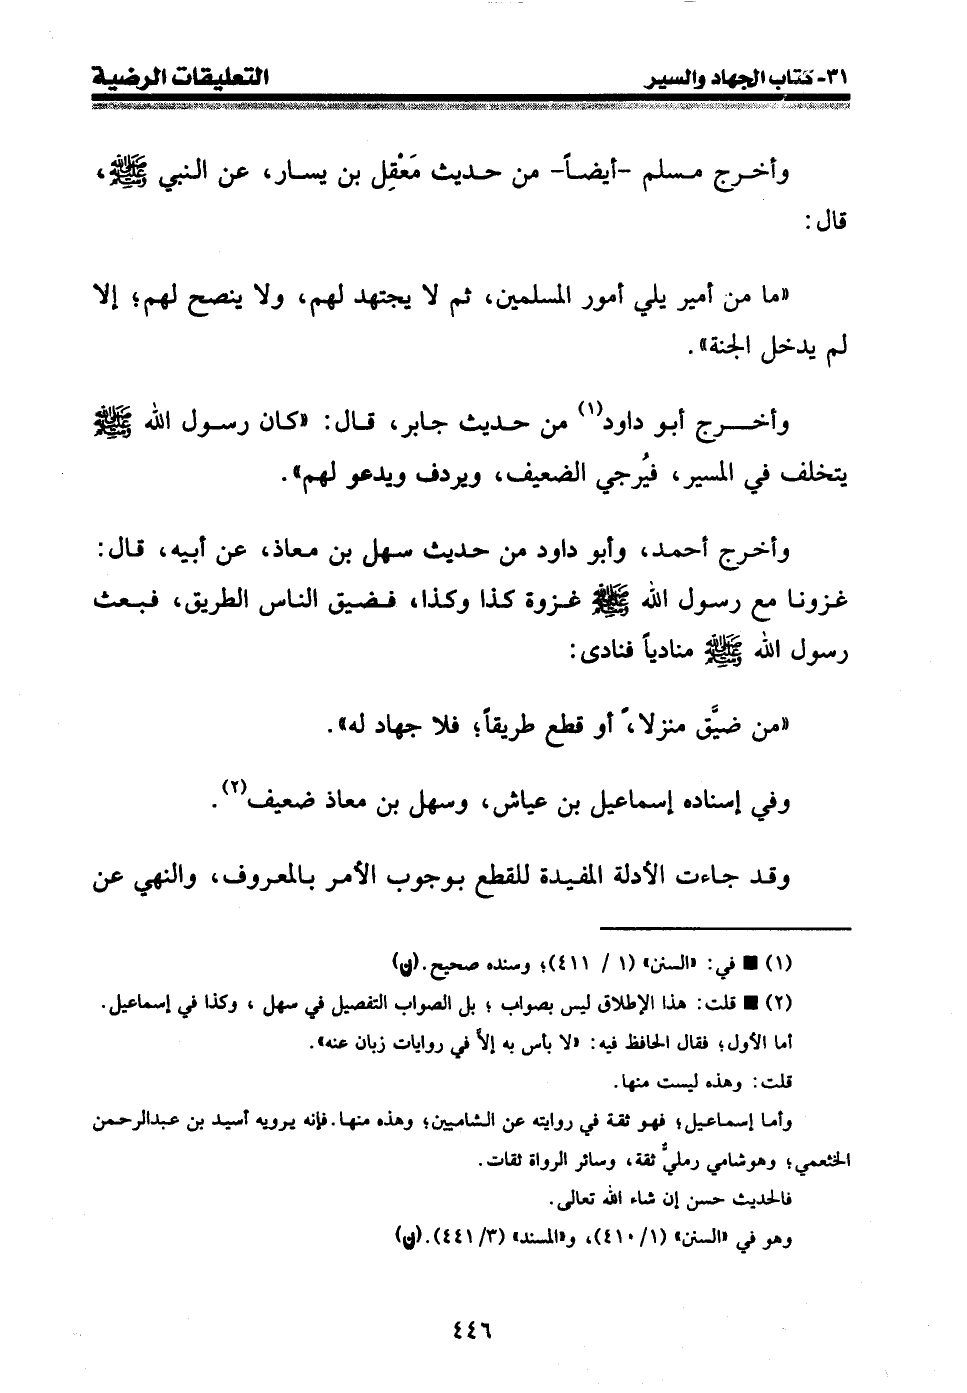 ٣١- كتاب الجهاد والسير
التعليقات الرضية
وأخرج مسلم -أيضاً- من حديث مَعْقِل بن يسار، عن النبي ﷺ،
قال:
«ما من أمير يلي أمور المسلمين، ثم لا يجتهد لهم، ولا ينصح لهم؛ إلا
لم يدخل الجنة».
وأخرج أبو داود(١) من حديث جابر، قال: «كان رسول الله ﷺ
يتخلف في المسير، فيُرجي الضعيف، ويردف ويدعو لهم».
وأخرج أحمد، وأبو داود من حديث سهل بن معاذ، عن أبيه، قال:
غزونا مع رسول الله ﷺ غزوة كذا وكذا، فضيق الناس الطريق، فبعث
رسول الله ﷺ منادياً فنادى:
«من ضيَّق منزلا،ً أو قطع طريقاً؛ فلا جهاد له».
وفي إسناده إسماعيل بن عياش، وسهل بن معاذ ضعيف(٢).
وقد جاءت الأدلة المفيدة للقطع بوجوب الأمر بالمعروف، والنهي عن
(١) ■ في: «السنن» (١ / ٤١١)؛ وسنده صحيح.(ن)
(٢) ■ قلت: هذا الإطلاق ليس بصواب ؛ بل الصواب التفصيل في سهل ، وكذا في إسماعيل.
أما الأول؛ فقال الحافظ فيه: «لا بأس به إلاَّ في روايات زبان عنه».
قلت: وهذه ليست منها.
وأما إسماعيل؛ فهو ثقة في روايته عن الشاميين؛ وهذه منها.فإنه يرويه أسيد بن عبدالرحمن
الخثعمي؛ وهوشامي رمليٌّ ثقة، وسائر الرواة ثقات.
فالحديث حسن إن شاء الله تعالى.
وهو في «السنن» (١/ ٤١٠)، و«المسند» (٣/ ٤٤١).(ن)
٤٤٦